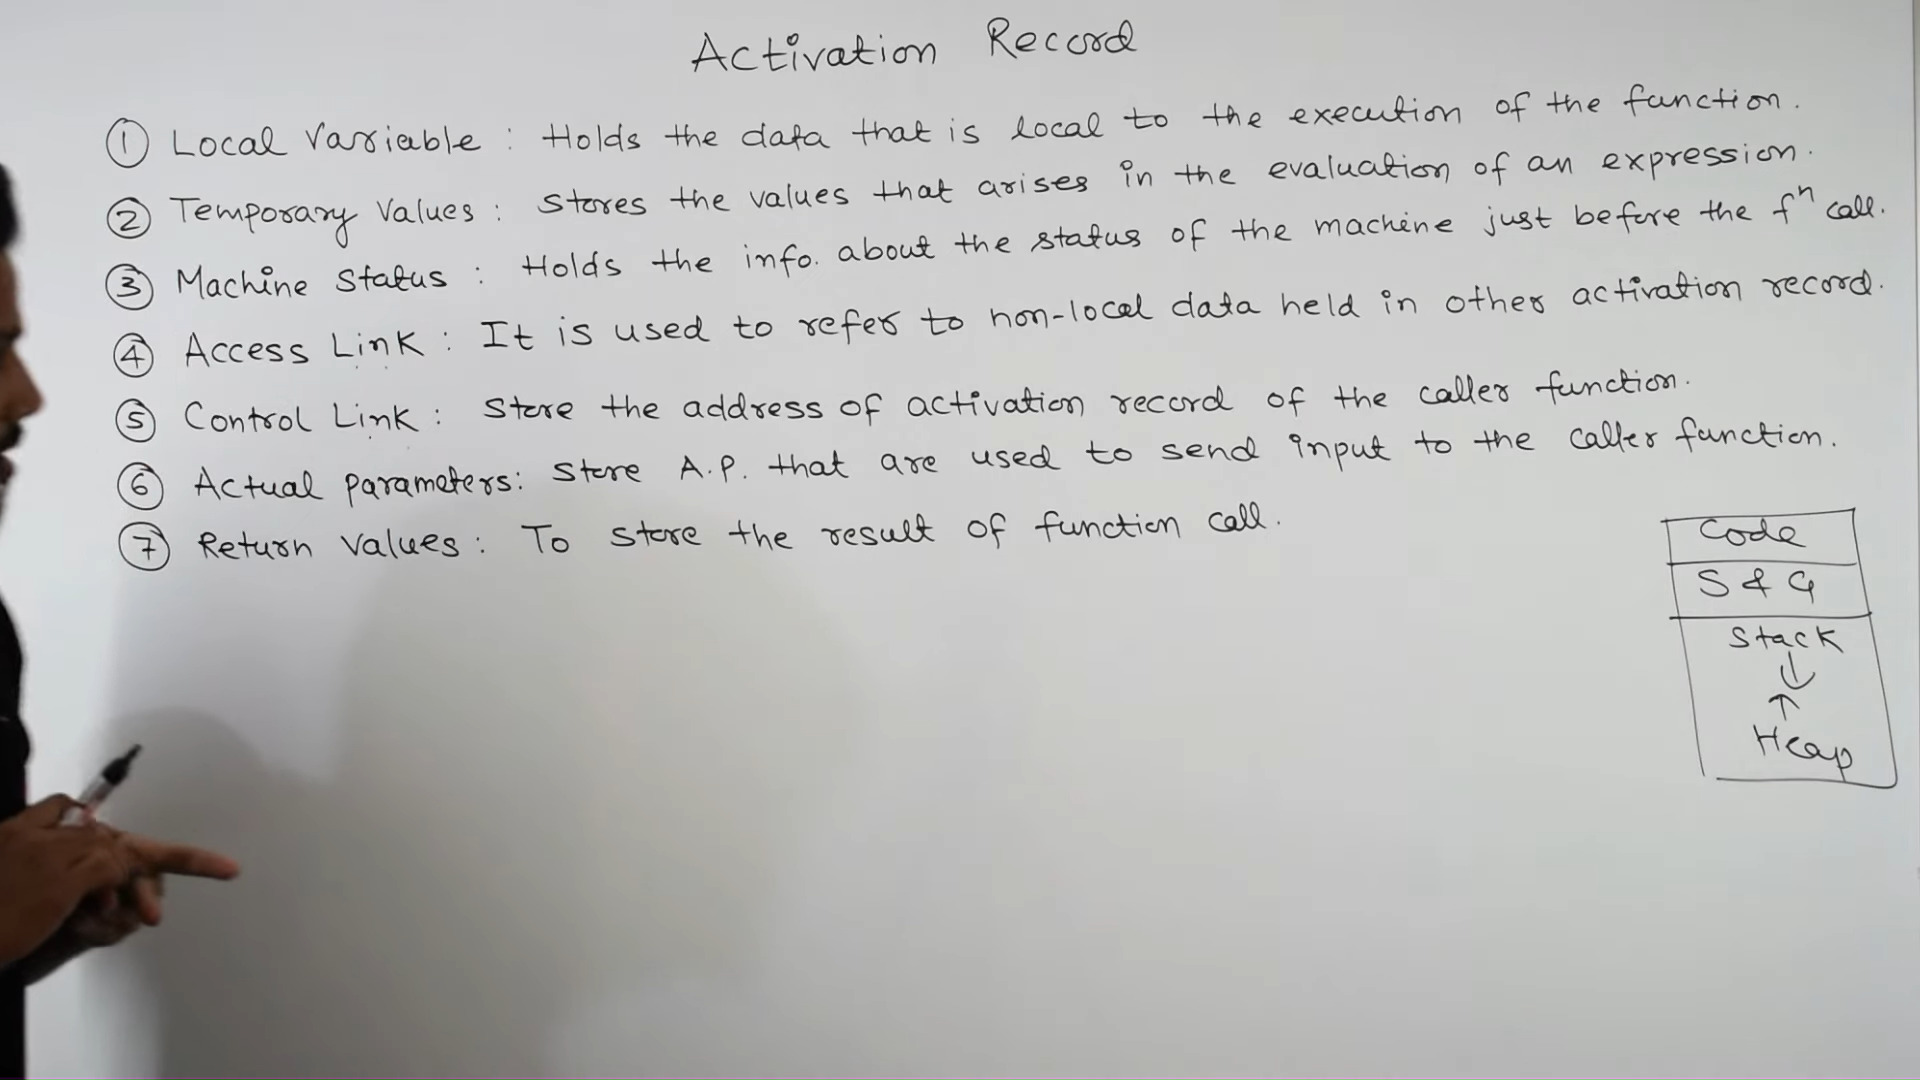 Activation Record
① Local Variable : Holds the data that is local to the execution of the function.
② Temporary Values : Stores the values that arises in the evaluation of an expression.
③ Machine Status : Holds the info. about the status of the machine just before the fⁿ call.
④ Access Link : It is used to refer to non-local data held in other activation record.
⑤ Control Link : Store the address of activation record of the caller function.
⑥ Actual parameters : Store A.P. that are used to send input to the caller function.
⑦ Return Values : To store the result of function call.
Code
S & G
Stack
↓
↑
Heap